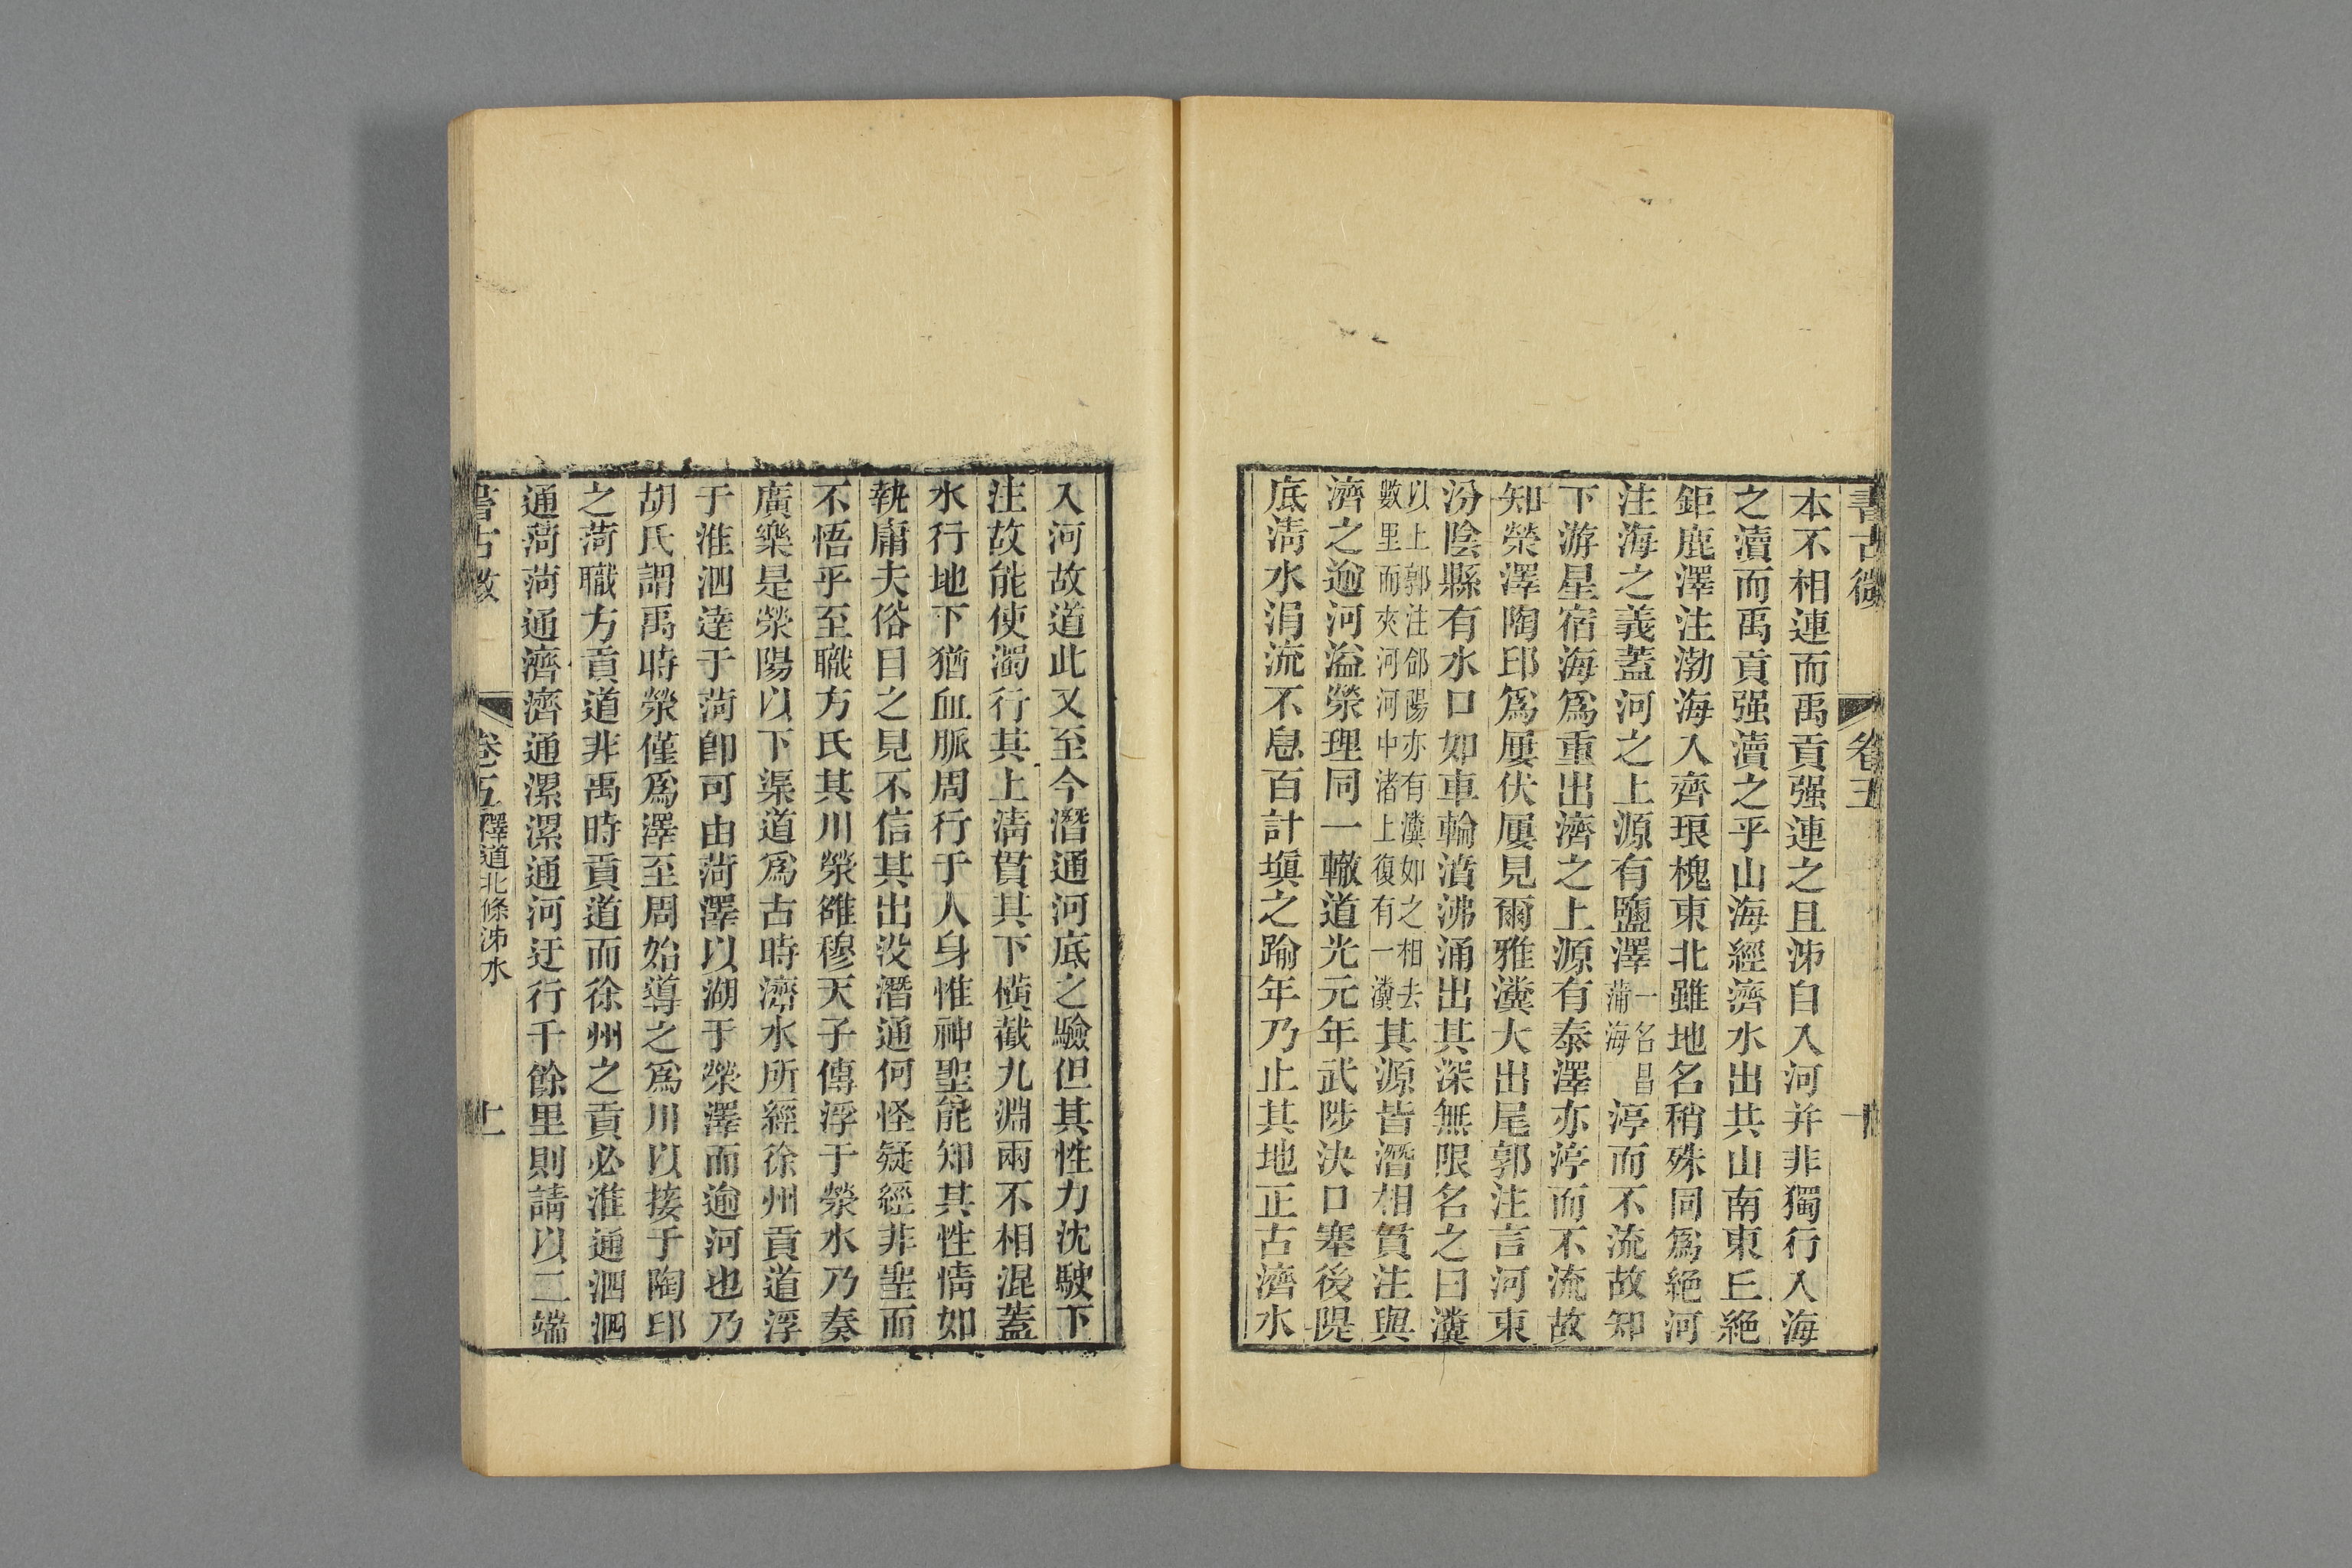 書古微
卷五
本不相連而禹貢强連之且泲自入河并非獨行入海
之瀆而禹貢强瀆之乎山海經濟水出共山南東𠀉絶
鉅鹿澤注渤海入齊琅槐東北雖地名稍殊同爲絶河
注海之義蓋河之上源有鹽澤一名昌蒲海渟而不流故知
下游星宿海爲重出濟之上源有泰澤亦渟而不流故
知滎澤陶邱爲屢伏屢見爾雅瀵大出尾郭注言河東
汾陰縣有水口如車輪濆沸涌出其深無限名之曰瀵
以上郭注郃陽亦有瀵如之相去數里而夾河河中渚上復有一瀵其源皆潛相貫注與
濟之逾河溢滎理同一轍道光元年武陟決口塞後隄
底淸水涓流不息百計塡之踰年乃止其地正古濟水
入河故道此又至今潛通河底之驗但其性力沈駛下
注故能使濁行其上淸貫其下橫截九淵兩不相混蓋
水行地下猶血脈周行于人身惟神聖能知其性情如
執庸夫俗目之見不信其出没潛通何怪疑經非聖而
不悟乎至職方氏其川滎雒穆天子傳浮于滎水乃奏
廣樂是滎陽以下渠道爲古時濟水所經徐州貢道浮
于淮泗達于菏卽可由菏澤以湖于滎澤而逾河也乃
胡氏謂禹時滎僅爲澤至周始導之爲川以接于陶邱
之菏職方貢道非禹時貢道而徐州之貢必淮通泗泗
通菏菏通濟濟通漯漯通河迂行千餘里則請以三端
書古微
卷五 釋道北條泲水